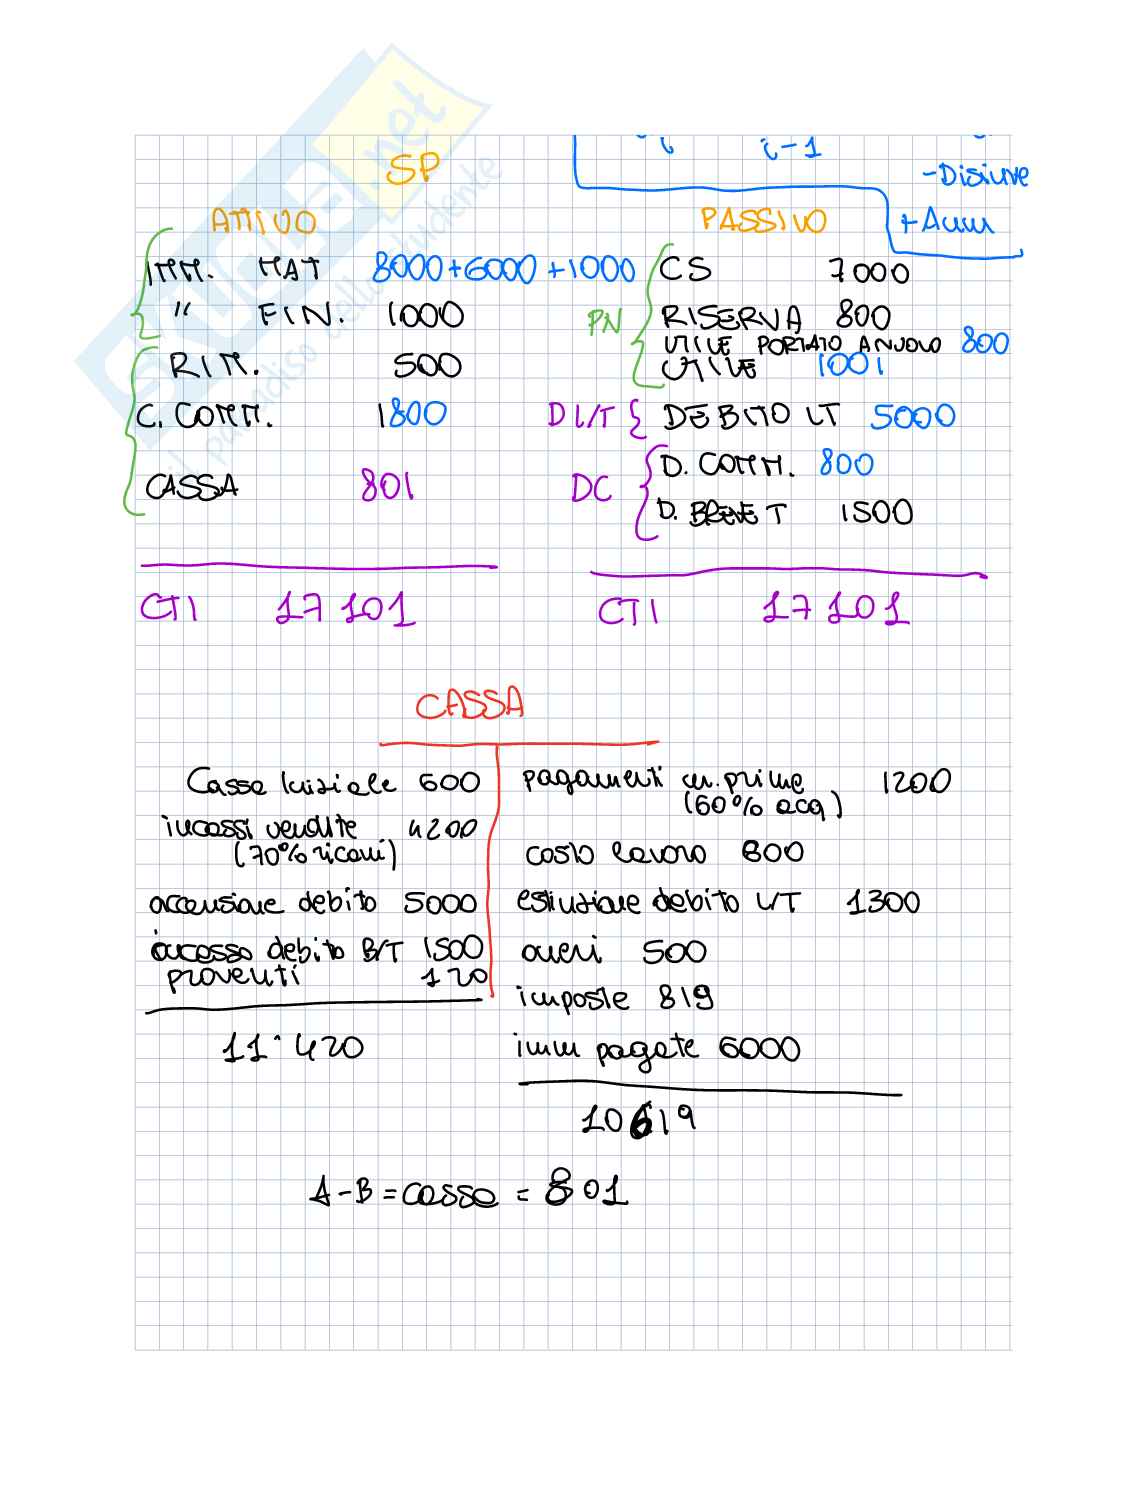 SP
i-1
-Disinv
+Amm
ATTIVO
PASSIVO
IMM. MAT 8000+6000+1000
CS 7000
" FIN. 1000
PN
RISERVA 800
UTILE PORTATO A NUOVO 800
RIM. 500
UTILE 1001
C. COMM. 1800
D L/T
DEBITO LT 5000
D. COMM. 800
CASSA 801
DC
D. BREVE T 1500
CTI 17101
CTI 17101
CASSA
Cassa iniziale 600
pagamenti m. prime 1200
(60% acq)
incassi vendite 4200
(70% ricavi)
costo lavoro 800
accensione debito 5000
estinzione debito L/T 1300
incasso debito B/T 1500
oneri 500
proventi 120
imposte 819
11·420
imm pagate 6000
10619
A-B = cassa = 801
SKUOLA.net
il paradiso dello studente